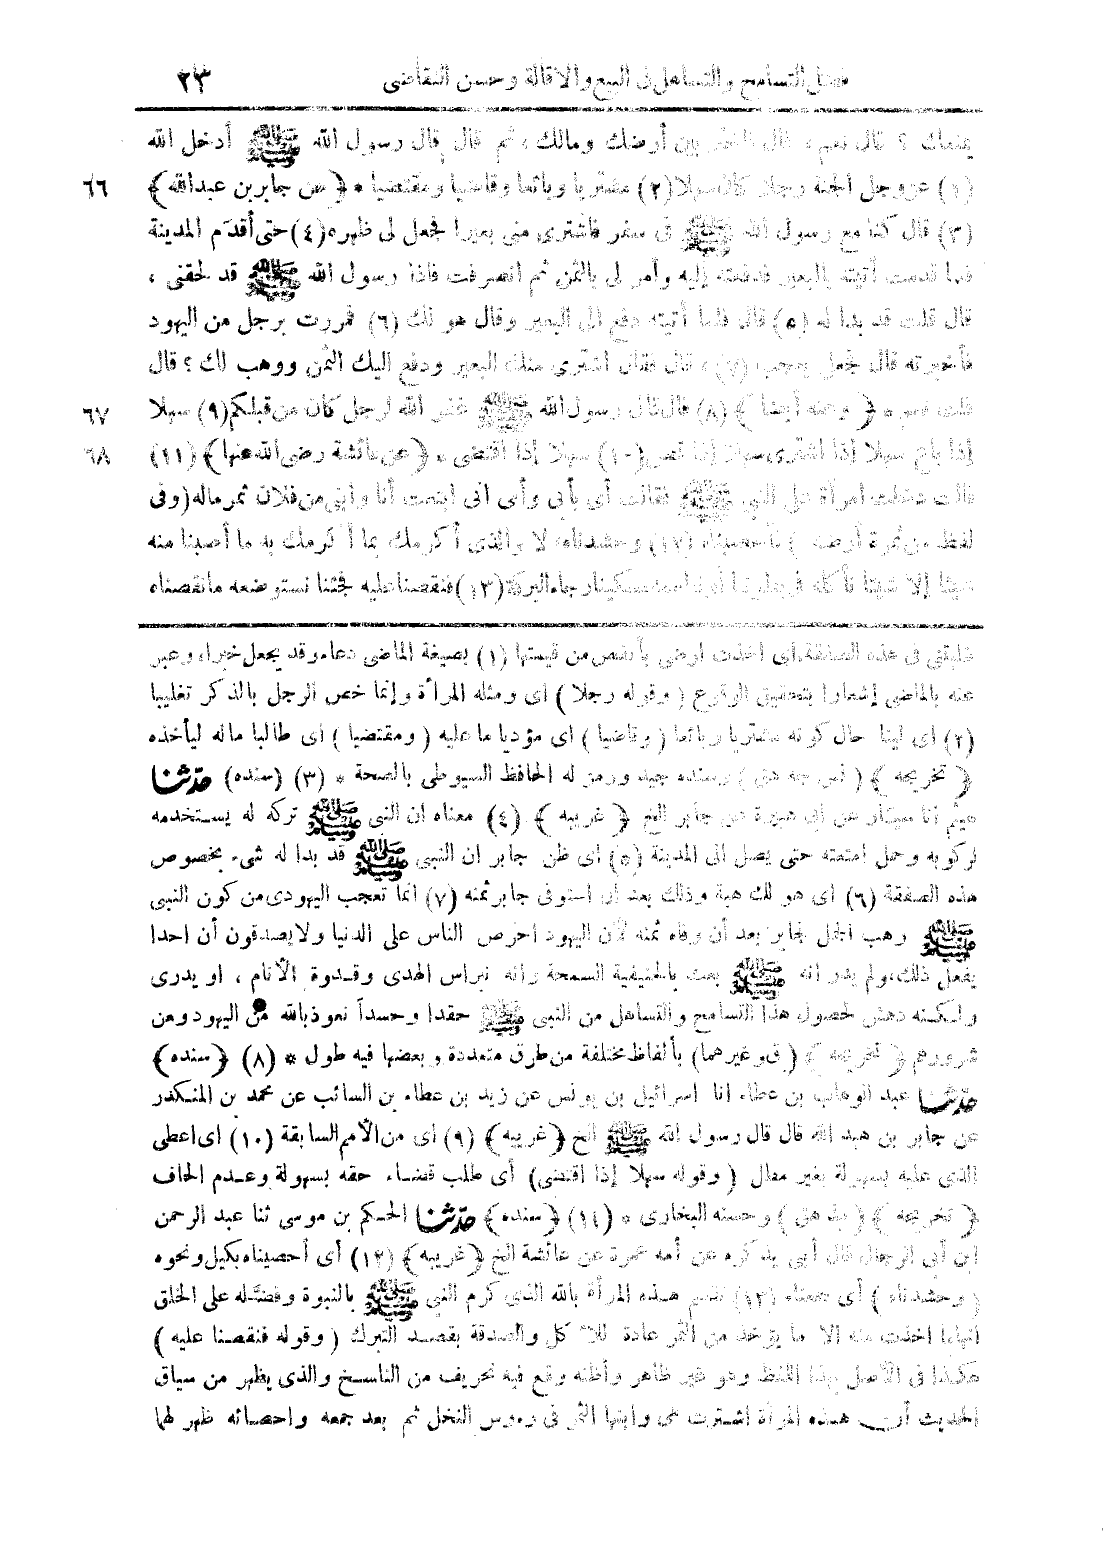 فضل التسامح والتساهل فى البيع والاقالة وحسن التقاضى ٢٣
يمنعك ؟ قال نعم، قال بين أرضك ومالك، ثم قال قال رسول الله ﷺ أدخل الله
(١) عز وجل الجنة رجلا كان سهلا (٢) مشتريا وبائعا وقاضيا ومقتضيا * ﴿عن جابر بن عبدالله﴾ ٦٦
(٣) قال كنا مع رسول الله ﷺ فى سفر فاشترى منى بعيرا فجعل لى ظهره (٤) حتى أقدم المدينة
فلما قدمت أتيته بالبعير فدفعته إليه وأمر لى بالثمن ثم انصرفت فاذا رسول الله ﷺ قد لحقنى ،
قال قلت قد بدا له (٥) قال فلما أتيته دفع الى البعير وقال هو لك (٦) فمررت برجل من اليهود
فأخبرته قال فجعل يعجب (٧) ، قال فقال اشترى منك البعير ودفع اليك الثمن ووهب لك ؟ قال
قلت نعم * ﴿ وعنه أيضا ﴾ (٨) قال قال رسول الله ﷺ غفر الله لرجل كان من قبلكم (٩) سهلا ٦٧
إذا باع سهلا إذا اشترى سهلا إذا قضى (١٠) سهلا إذا اقتضى * ﴿عن عائشة رضى الله عنها﴾ (١١) ٦٨
قالت دخلت امرأة على النبي ﷺ فقالت أى بأبى وأمى انى ابتعت أنا وابنى من فلان ثمر ماله (وفى
لفظ من ثمرة أرضه ) فأحصيناه (١٢) وحشدناه، لا والذى أكرمك بما أكرمك به ما أصبنا منه
شيئا إلا شيئا نأكله فى بطوننا أو نطعمه مسكينا رجاء البركة (١٣) فنقصنا عليه فجئنا نستوضعه ما نقصناه
فى هذه الصفقة، أى اخذت ارضى بأنقص من قيمتها (١) بصيغة الماضى دعاء وقد يجعل خبرا، وعبر
عنه بالماضى إشعارا بتحقيق الوقوع ( وقوله رجلا ) اى ومثله المرأة وإنما خص الرجل بالذكر تغليبا
(٢) اى لينا حال كونه مشتريا وبائعا ( وقاضيا ) اى مؤديا ما عليه ( ومقتضيا ) اى طالبا ماله ليأخذه
﴿ تخريجه ﴾ ( نس جه هق ) وسنده جيد ورمز له الحافظ السيوطى بالصحة * (٣) ﴿سنده﴾ حدثنا
هشيم أنا سيار عن أبى هبيرة عن جابر الخ ﴿ غريبه ﴾ (٤) معناه ان النبى ﷺ تركه له يستخدمه
لركوبه وحمل امتعته حتى يصل الى المدينة (٥) اى ظن جابر ان النبى ﷺ قد بدا له شىء بخصوص
هذه الصفقة (٦) اى هو لك هبة وذلك بعد ان استوفى جابر ثمنه (٧) انما تعجب اليهودى من كون النبى
ﷺ وهب الجمل لجابر بعد أن وفاه ثمنه لأن اليهود احرص الناس على الدنيا ولا يصدقون أن احدا
يفعل ذلك، ولم يدر انه ﷺ بعث بالحنيفية السمحة وانه نبراس الهدى وقدوة الأنام ، او يدرى
ولكنه دهش لحصول هذا التسامح والتساهل من النبى ﷺ حقدا وحسداً نعوذ بالله من اليهود ومن
شرورهم ﴿ تخريجه ﴾ ( ق وغيرهما) بألفاظ مختلفة من طرق متعددة وبعضها فيه طول * (٨) ﴿سنده﴾
حدثنا عبد الوهاب بن عطاء انا اسرائيل بن يونس عن زيد بن عطاء بن السائب عن محمد بن المنكدر
عن جابر بن عبد الله قال قال رسول الله ﷺ الخ ﴿غريبه﴾ (٩) أى من الأمم السابقة (١٠) أى اعطى
الذى عليه بسهولة بغير مطل ( وقوله سهلا إذا اقتضى) أى طلب قضاء حقه بسهولة وعدم الحاف
﴿ تخريجه ﴾ ( مذ هق ) وحسنه البخارى * (١١) ﴿سنده﴾ حدثنا الحكم بن موسى ثنا عبد الرحمن
ابن أبى الرجال قال أبى يذكره عن أمه عمرة عن عائشة الخ ﴿غريبه﴾ (١٢) أى أحصيناه بكيل ونحوه
( وحشدناه ) أى جمعناه (١٣) تقسم هذه المرأة بالله الذى كرم النبى ﷺ بالنبوة وفضله على الخلق
انهما اخذت منه الا ما يؤخذ من الثمر عادة للأكل والصدقة بقصد التبرك ( وقوله فنقصنا عليه )
هكذا فى الأصل بهذا اللفظ وهو غير ظاهر وأظنه وقع فيه تحريف من الناسخ والذى يظهر من سياق
الحديث أن هذه المرأة اشترت هى وابنها الثمر فى رءوس النخل ثم بعد جمعه واحصائه ظهر لها